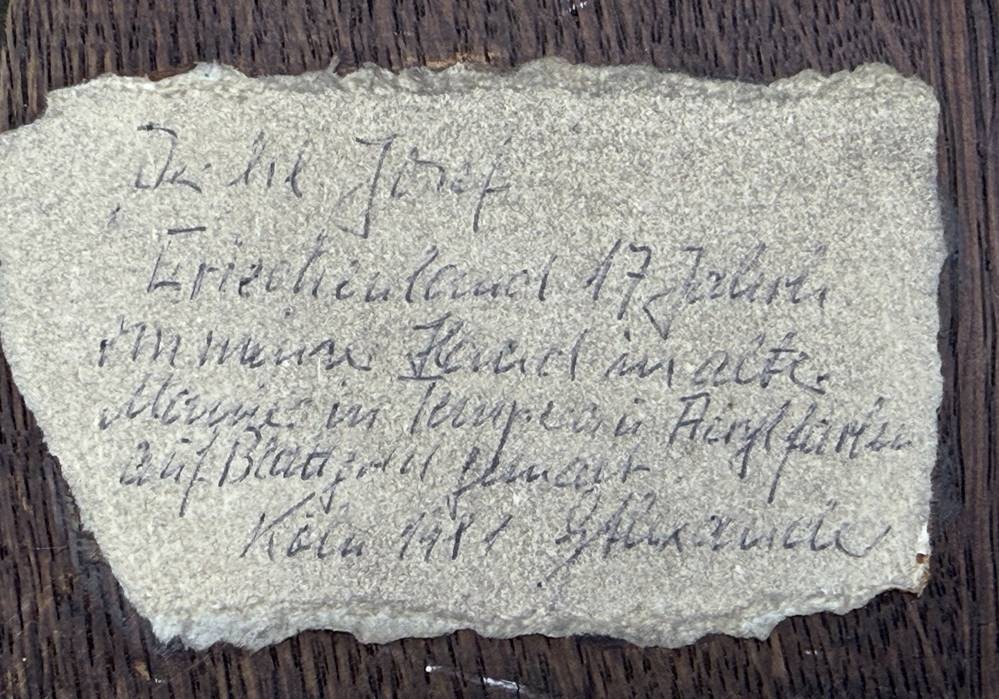 Der hl. Josef
Griechenland 17 Jahrh.
von meiner Hand in alter
Manier in Tempera in Acrylfarben
auf Blattgold gemalt
Köln 1981 Alexander